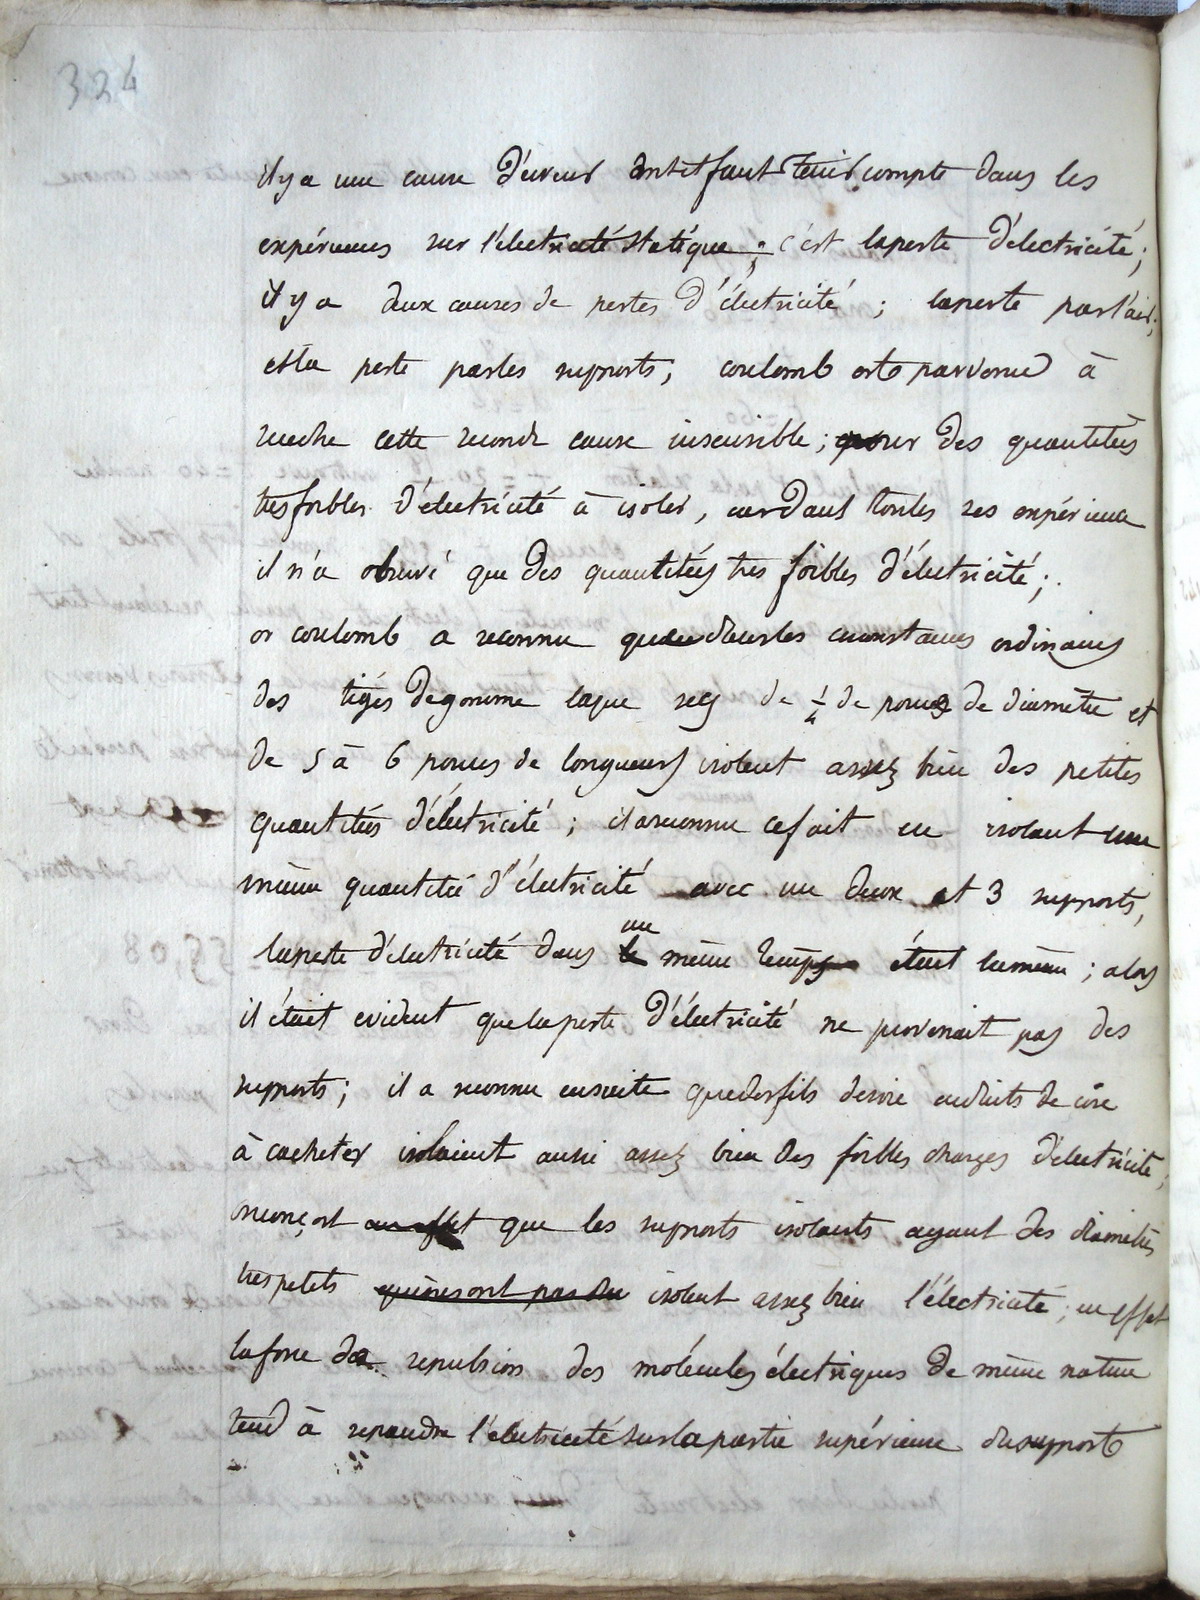 324
il y a une cause d'erreur dont il faut tenir compte dans les
expériences sur l'électricité statique ; c'est la perte d'électricité ;
il y a deux causes de pertes d'électricité ; la perte par l'air ;
et la perte par les supports ; coulomb est parvenu à
rendre cette seconde cause insensible ; pour des quantités
tres foibles d'électricité à isoler, car dans toutes ses expérience
il n'a observé que des quantitées tres foibles d'électricité ;
or coulomb a reconnu que dans les circonstances ordinaires
des tiges de gomme laque de 1/4 de pouce de diamètre et
de 5 à 6 pouces de longueurs isolent assez bien des petites
quantitées d'éléctricité ; il a reconnu ce fait en isolant une
même quantitée d'électricité avec un deux et 3 supports,
un
la perte d'électricité dans le même temps était la même ; alors
il était evident que la perte d'électricité ne provenait pas des
supports ; il a reconnu ensuite que des fils de soie enduits de cire
à cacheter isolaient aussi assez bien des foibles charges d'électricité ;
on conçoit en effet que les supports isolants ayant des diamètres
tres petits qui ne sont pas du isolent assez bien l'électricité ; en effet
la force de repulsion des molécules électriques de même nature
tend à repandre l'électricité sur la partie supérieure du support